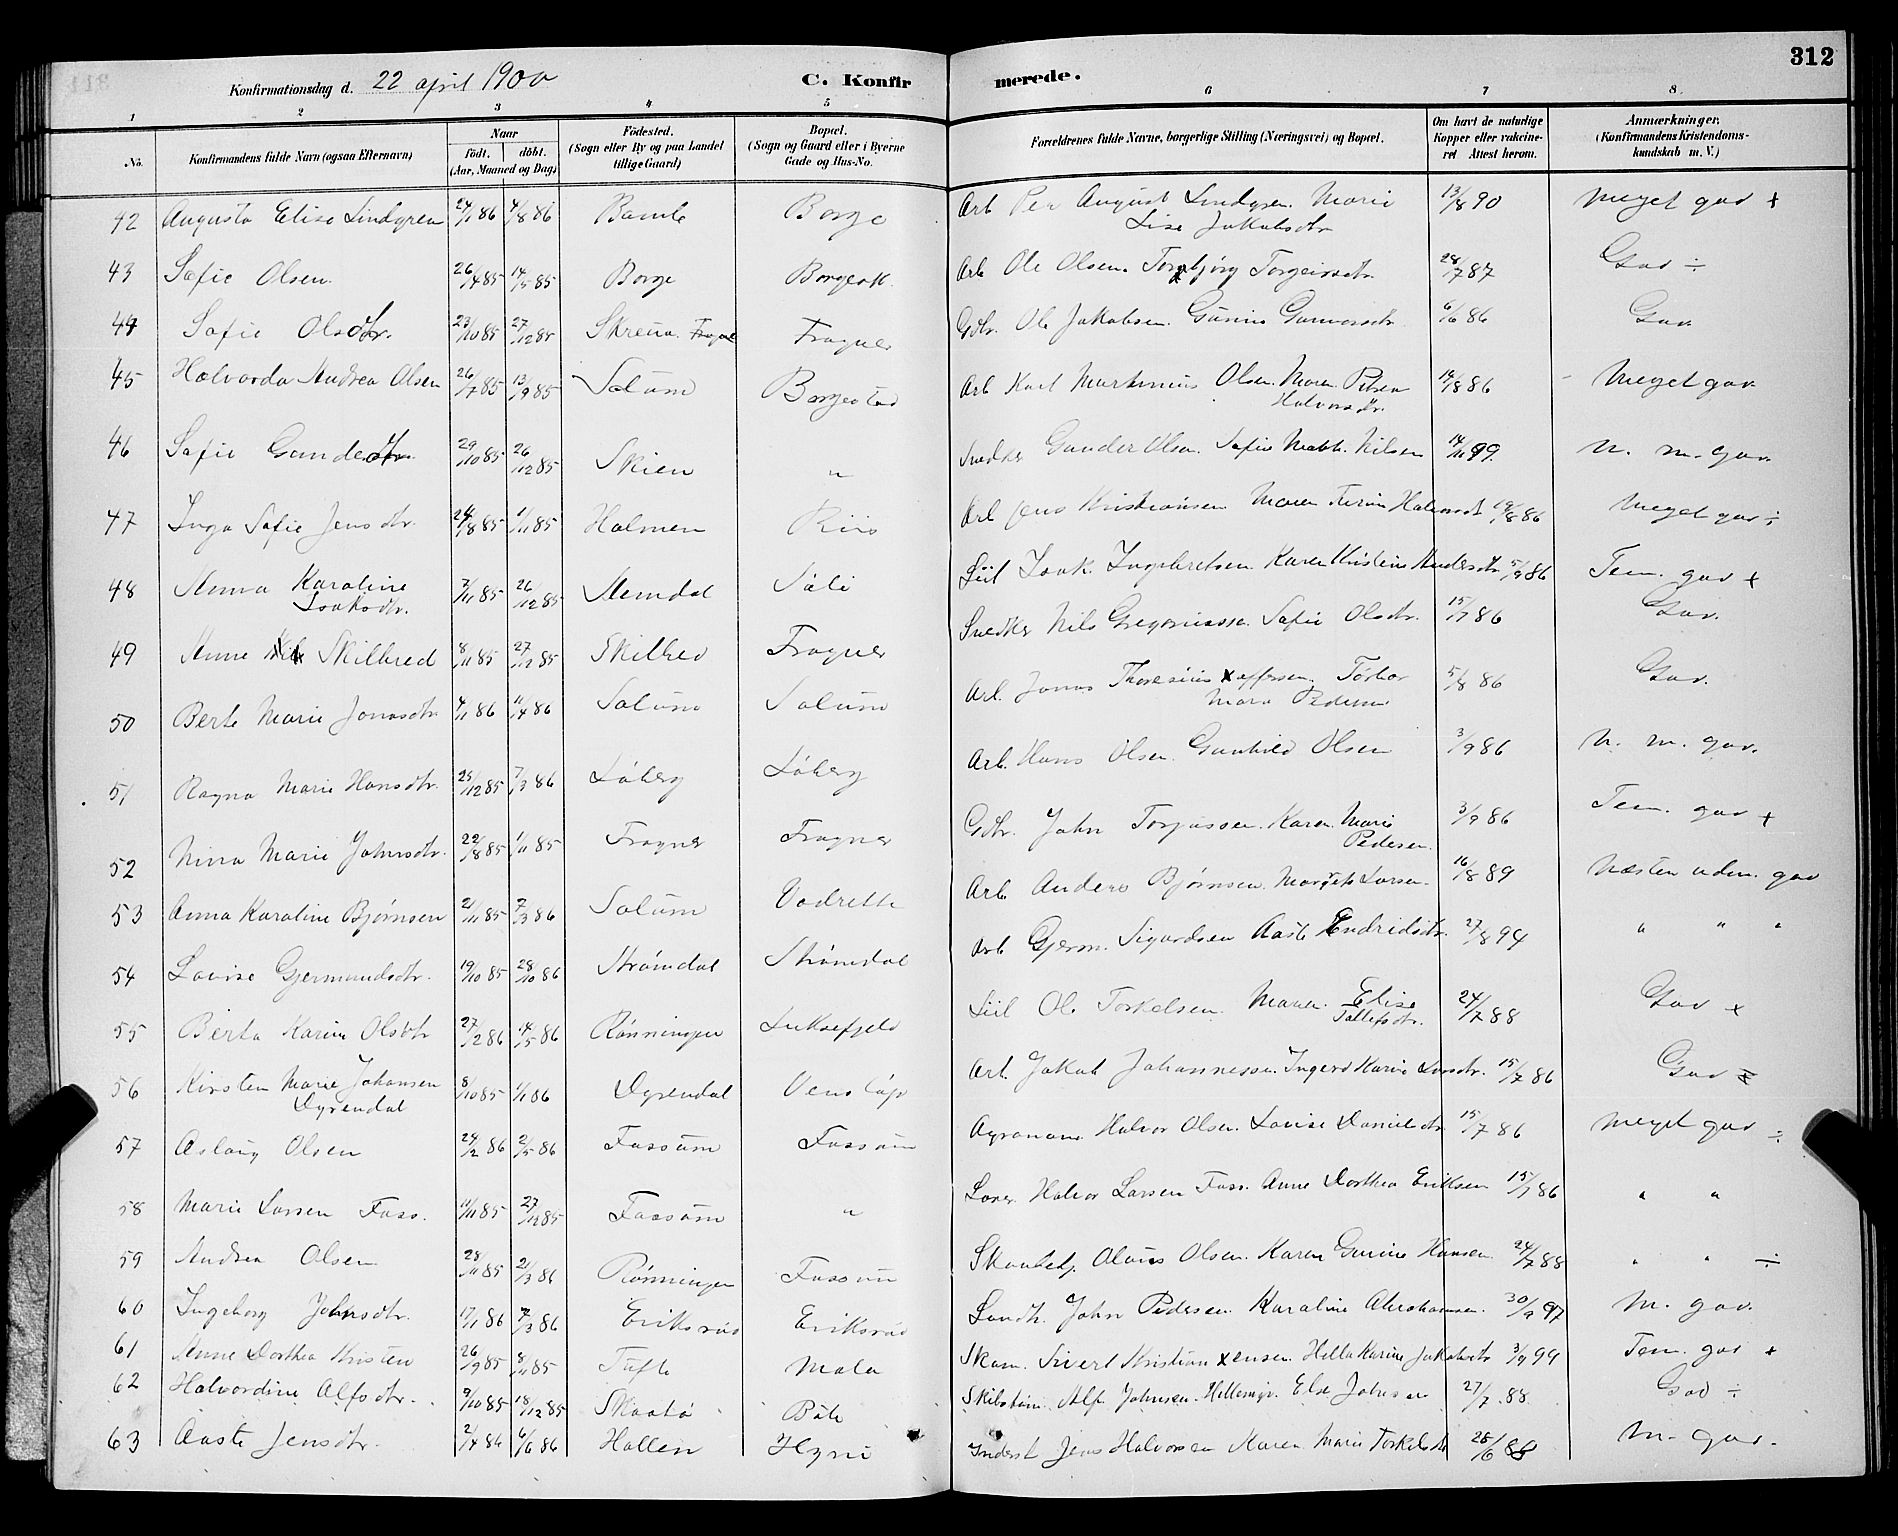 312
Konfirmationsdag d. 22 april 1900 C. Konfirmerede.
1 2 3 4 5 6 7 8
No. Konfirmandens fulde Navn (ogsaa Efternavn) Naar födt. döbt. (Aar, Maaned og Dag) Födested. (Sogn eller By og paa Landet tillige Gaard) Bopæl. (Sogn og Gaard eller i Byerne Gade og Hus-No. Forældrenes fulde Navne, borgerlige Stilling (Næringsvei) og Bopæl. Om havt de naturlige Kopper eller vakcineret Attest herom. Anmærkninger. (Konfirmandens Kristendomskundskab m. V.)
42 Augusta Elise Lindgren 24/1 86 4/8 86 Bamle Borge Arb Per August Lindgren. Marie Lise Jakobsdtr 13/8 90 Meget god +
43 Sofie Olsen. 26/4 85 14/5 85 Borge Borgeak. Arb Ole Olsen. Torbjørg Torgeirsdtr. 28/7 87 God ÷
44 Sofie Olsdtr. 23/10 85 27/12 85 Skreua. Frogner Frogner Gdbr. Ole Jakobsen. 6/6 86 God.
45 Halvarda Andrea Olsen 26/7 85 13/9 85 Solum Borgestad Arb Karl Martinius Olsen. Maren Petrea Halvorsdtr. 14/8 86 Meget god.
46 Sofie Gundersdtr. 29/10 85 26/12 85 Skien " Snedker Gunder Olsen. Sofie Math. Nilsen 14/11 99. N. m. god.
47 Inga Sofie Jensdtr. 24/8 85 1/11 85 Holmen Riis Arb Jens Kristiansen Maren Halvorsdt 19/8 86 Meget god ÷
48 Anna Karoline Isaksdtr. 7/11 85 26/12 85 Stemdal Sóli Isak Ingebretsen Karen Kristine Andersdtr. 5/9 86 Tem. god +
49 Anne Skilbred 8/11 85 27/12 85 Skilbred Frogner Snedker Nils Sofie Olsdtr. 15/7 86 God.
50 Berte Marie Jonasdtr 4/1 86 11/4 86 Solum Solum Arb. Jonas Pedersen 5/8 86 God.
51 Ragna Marie Hansdtr. 25/12 85 7/3 86 Lóberg Lóberg Arb. Hans Olsen. Gunhild Olsen 3/9 86 N. m. god.
52 Nina Marie Johnsdtr. 22/8 85 1/11 85 Frogner Frogner Gdbr. John Torjussen. Karen Marie Pedersen. 3/9 86 Tem. god +
53 Anna Karoline Bjørnsen 2/11 85 7/3 86 Solum Vadrette Arb Anders Bjørnsen. Larsen. 16/8 89 Næsten uden. god
54 Lovise Gjermundsdtr. 19/10 85 28/10 86 Strömdal Strömdal Arb Gjerm. Sigurdsen Aaste Endridsdtr. 27/8 94 " " "
55 Berta Karine Olsdtr 27/2 86 14/5 86 Rönningen Luksefjeld Ole Torkelsen. Maren. Elise Tollefsdtr. 24/7 88 God +
56 Kirsten Marie Johansen Dyrendal 8/10 85 1/1 86 Dyrendal Venstöp Arb. Jakob Johannessen. Ingerd Karine 15/7 86 God
57 Aslaug Olsen 24/2 86 2/5 86 Fossum Fossum Agronom Halvor Olsen. Lovise Danielsdtr 15/7 86 Meget god ÷
58 Marie Larsen Foss. 11/11 85 27/12 85 Fossum " Halvor Larsen Foss. Anne Dorthea Eriksen 15/7 86 " "
59 Andrea Olsen 28/11 85 21/3 86 Rönningen Fossum Olaus Olsen. Karen Gurine Hansen. 24/7 88 " " ÷
60 Ingeborg Johnsdtr. 17/1 86 7/3 86 Eriksröd Eriksröd Landh. John Pedersen. Karoline Abrahamsen. 30/9 97 M. god.
61 Anne Dorthea Kristen 26/9 85 8/11 85 Tufte Mala Skom. Sivert Kristian Helle Karine Jakobsdtr 3/9 99 Tem. god +
62 Halvordine Alfsdtr. 9/10 85 18/12 85 Skaatö Böle Alf Johnsen. Else Johnsen 27/7. 88. God ÷
63 Aaste Jensdtr. 2/4 86 6/6 86 Hollen Hyni Inderst Jens Halvorsen Karen Marie Torkelsdt 28/6 88 M. god.